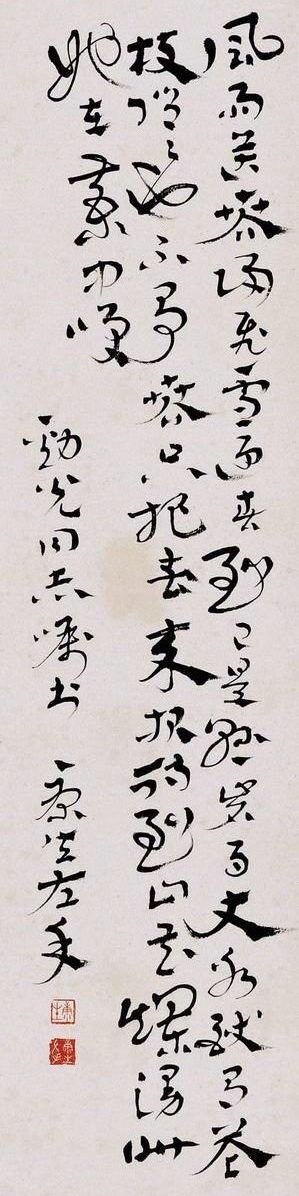 風雨送春歸飛雪迎春到已是懸崖百丈冰猶有花
枝俏〻也不爭春只把春來報待到山花爛漫時
她在叢中咲
勁光同志囑書 康生左手